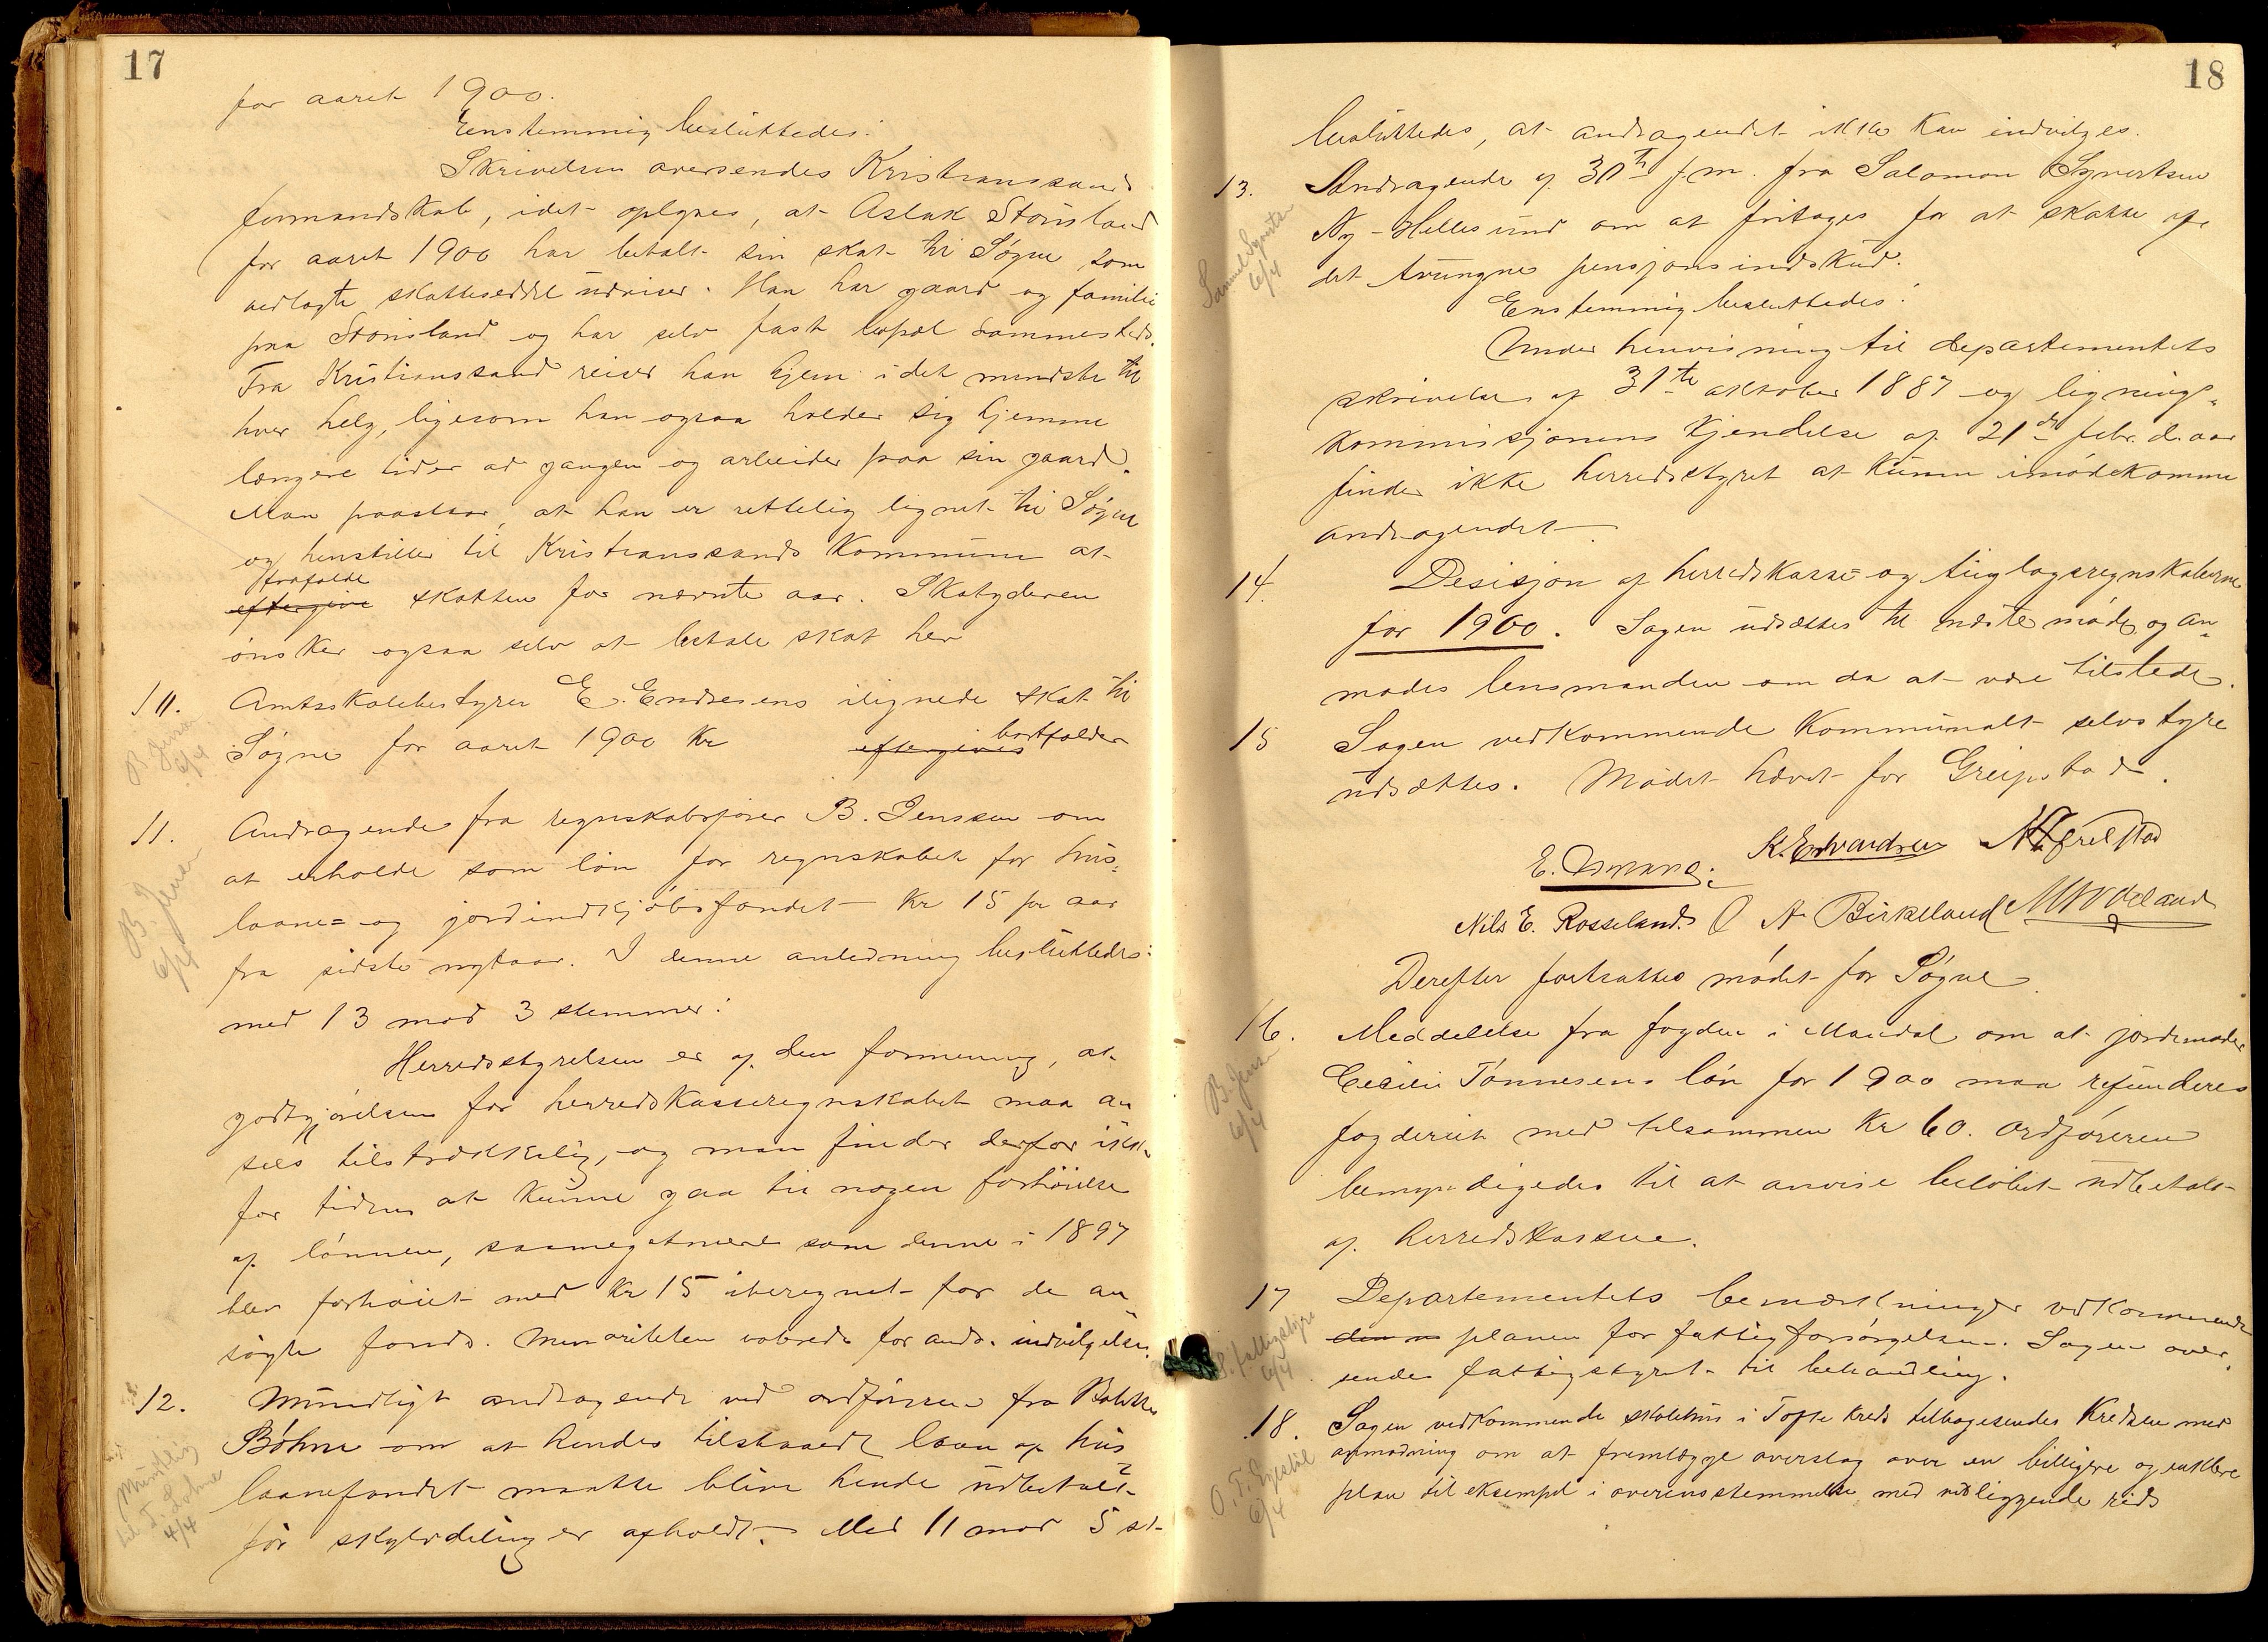 17
for aaret 1900.
Eenstemmig besluttedes:
Skrivelsen oversendes Kristianssands
formandskab, idet oplyses, at Aslak Stousland
for aaret 1900 har betalt sin skat til Søgne som
vedlagte skatteseddel udviser. Han har gaard og familie
paa Stousland og har selv fast bopæl sammesteds.
Fra Kristianssand reiser han hjem i det mindste til
hver helg, ligesom han ogsaa holder sig hjemme
længere tider ad gangen og arbeider paa sin gaard.
Man paastaar, at han er rettelig lignet til Søgne
og henstiller til Kristianssands kommune at
frafalde
eftergive skatten for nævnte aar. Skatyderen
ønsker ogsaa selv at betale skat her
10. Amtsskolebestyrer E. Endresens ilignede skat til
Søgne for aaret 1900 Kr eftergives bortfalder
B. Jensen
6/4
11. Andragende fra regnskabsfører B. Jenssen om
at erholde som løn for regnskabet for hus=
laane= og jordindkjøbsfondet Kr 15 pr aar
fra sidste nytaar. I denne anledning besluttedes:
med 13 mod 3 stemmer:
B. Jensen
6/4
Herredsstyrelsen er af den formening, at
godtgjørelsen for herredskasseregnskabet maa an
sees tilstrækkelig, og man finder derfor ikke
for tiden at kunne gaa til nogen forhøielse
af lønnen, saameget mere som denne i 1897
blev forhøiet med Kr 15 iberegnet for de an
søgte fonds. Minoriteten voterede for ands. indvilgelse.
12. Mundligt andragende ved ordføreren fra
Bøhne om at hendes tilstaaede laan af hus
laanefondet maatte blive hende udbetalt
før skylddeling er afholdt. Med 11 mod 5 st
Mundtlig
til
4/4
18
besluttedes, at andragendet ikke kan indvilges.
13. Andragende af 30te f.m. fra Salomon Syvertsen
Ny-Hellesund om at fritages for at skatte af
det tvungne pensjonsindskud.
Enstemmig besluttedes:
6/4
Under henvisning til departementets
skrivelse af 31te oktober 1887 og lignings=
kommissjonens kjendelse af 21de febr. d. aar
finder ikke herredsstyret at kunne imødekomme
andragendet.
14. Desisjon af herredskasse= og tinglagsregnskaberne
for 1900. Sagen udsættes til næste møde, og an=
modes lensmanden om da at være tilstede.
15 Sagen vedkommende kommunalt selvstyre
udsættes. Mødet hævet for Greipstad.
K. Edvardsen
Nils E. Rosseland. A Birkeland
Derefter fortsattes mødet for Søgne
16. Meddelelse fra fogden i Mandal om at jordmoder
Cecilie Tønnesens løn for 1900 maa refunderes
fogderiet med tilsammen Kr 60. Ordføreren
bemyndigedes til at anvise beløbet udbetalt
af herredskassen.
B. Jensen
6/4
17 Departementets bemærkninger vedkommende
planen for fattigforsørgelsen. Sagen over=
sendes fattigstyret til behandling.
fattigstyre
6/4
18. Sagen vedkommende skolehus i Tofte kreds tilbagesendes kredsen med
anmodning om at fremlægge overslag over en billigere og enklere
plan til eksempel i overensstemmelse med vedliggende rids
6/4